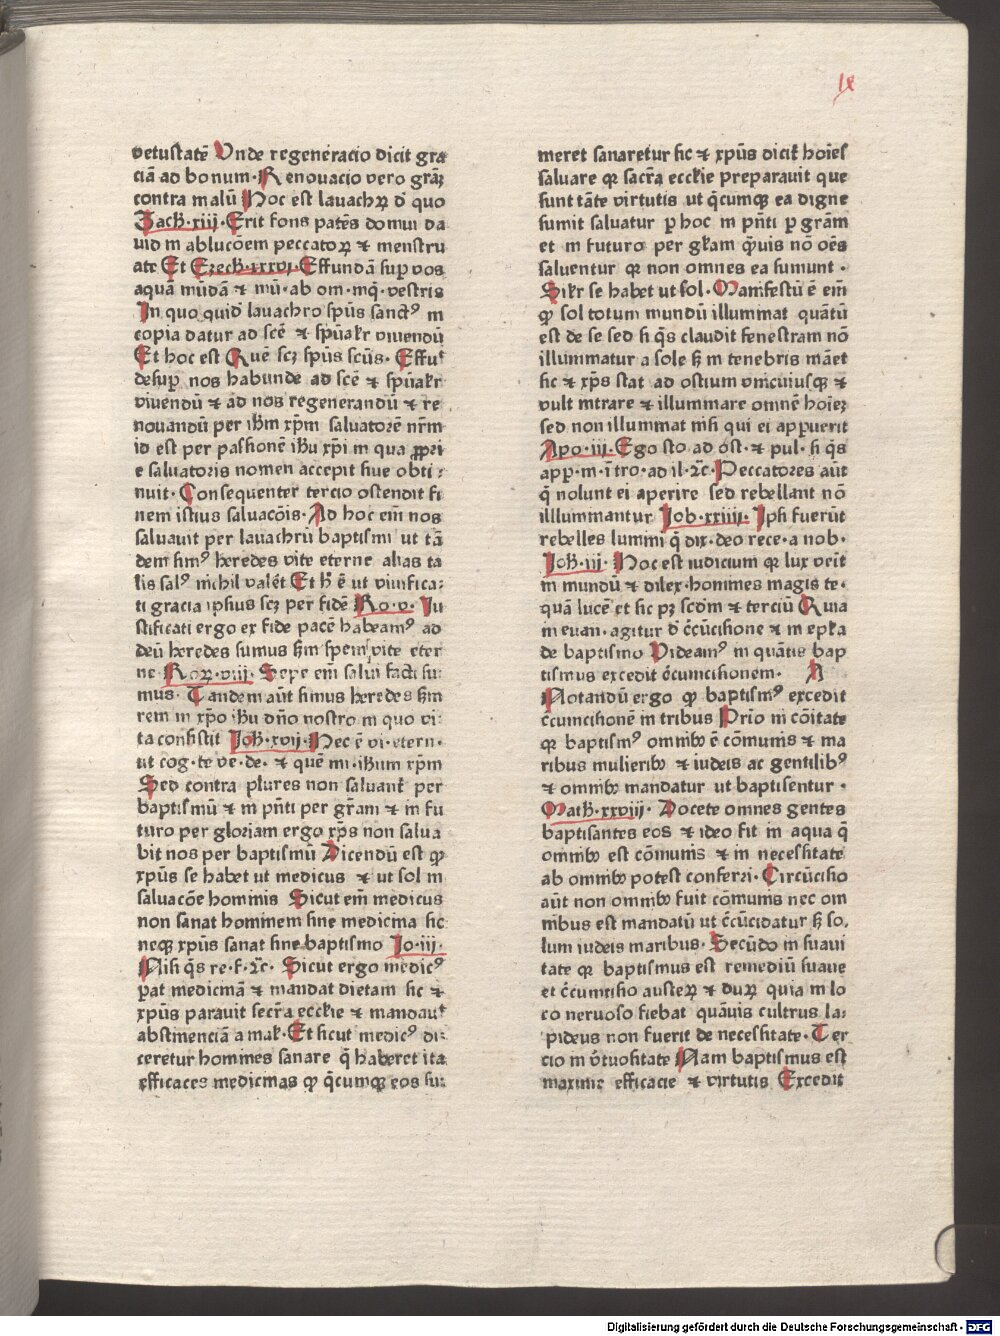 lx
vetustatē Vnde regeneracio dicit gra
ciā ad bonum· Renouacio vero grāꝫ
contra malū Hoc est lauachꝝ d̄ quo
Zach·xiii· Erit fons patēs domui da
uid in ablucōem peccatoꝝ ⁊ menstru
ate Et Ezech·xxxvi· Effundā suꝑ vos
aquā mūdā ⁊ mū· ab om·inq̄· vestris
In quo quid lauachro spūs sanctꝰ in
copia datur ad scē ⁊ spūalr viuendū
Et hoc est Quē scꝫ spūs scūs· Effuᵗ
desuꝑ nos habunde ad scē ⁊ spūalr
viuendū ⁊ ad nos regenerandū ⁊ re
nouandū per ihm̄ xp̄m saluatorē nr̄m
id est per passionē ihū xp̄i in qua ꝓpri
e saluatoris nomen accepit siue obti:
nuit· Consequenter tercio ostendit fi
nem istius saluacōis· Ad hoc em̄ nos
saluauit per lauachrū baptismi ut tā
dem simꝰ heredes vite eterne alias ta
lis salꝰ nichil valēt Et h̄ ē ut viuifica:
ti gracia ipsius scꝫ per fidē Ro·v· Iu
stificati ergo ex fide pacē habeamꝰ ad
deū heredes sumus scdm̄ spem vite eter
ne Roꝝ·viij· Sepe em̄ salui facti su
mus· Tandem aūt simus heredes scdm̄
rem in xp̄o ihū dn̄o nostro in quo vi:
ta consistit Joh·xvij· Hec ē vi·etern·
ut cog·te ve·de· ⁊ quē mi·ihūm xp̄m
Sed contra plures non saluant̄ per
baptismū ⁊ in pn̄ti per gr̄am ⁊ in fu
turo per gloriam ergo xp̄s non salua
bit nos per baptismū Dicendū est ꝙ
xpūs se habet ut medicus ⁊ ut sol in
saluacōe hominis Sicut em̄ medicus
non sanat hominem sine medicina sic
neqꝫ xpūs sanat sine baptismo Jo·iij·
Nisi q̄s re·f·⁊c̄· Sicut ergo medicꝰ
ꝑat medicinā ⁊ mandat dietam sic ⁊
xpūs parauit secr̄a ecclie ⁊ mandauᵗ
abstinenciā a mal· Et sicut medicꝰ di:
ceretur homines sanare q̄ haberet ita
efficaces medicinas ꝙ q̄cumqꝫ eos su:
meret sanaretur sic ⁊ xpūs dicit̄ hoīes
saluare qꝛ sacr̄a ecclie preparauit que
sunt tāte virtutis ut q̄cumqꝫ ea digne
sumit saluatur ꝑ hoc in pn̄ti ꝑ gr̄am
et in futuro per gl̄am q̄uis nō oēs
saluentur qꝛ non omnes ea sumunt·
Silr se habet ut sol· Manifestū ē em̄
ꝙ sol totum mundū illuminat quātū
est de se sed si q̄s claudit fenestram nō
illuminatur a sole sꝫ in tenebris māet
sic ⁊ xp̄s stat ad ostium vniuiusqꝫ ⁊
vult intrare ⁊ illuminare omnē hoīeꝫ
sed non illuminat nisi qui ei appuerit
Apo·iij· Ego sto ad ost·⁊ pul· si q̄s
apꝑ·in·ītro·ad il·⁊c̄· Peccatores aūt
q̄ nolunt ei aperire sed rebellant nō
illluminantur Job·xxiiij· Ipsi fuerūt
rebelles lumini q̄ dix·deo rece·a nob·
Joh·iij· Hoc est iudicium qꝛ lux venīt
in mundū ⁊ dilex·homines magis te·
quā lucē et sic pꝫ scdm ⁊ terciū Quia
in euan·agitur d̄ c̄cūcisione ⁊ in epl̄a
de baptismo Videamꝰ in quātis bap
tismus excedit c̄cumcisionem· A
Notandū ergo ꝙ baptismꝰ excedit
c̄cumcisionē in tribus Prio in cōitate
qꝛ baptismꝰ omnibꝫ ē cōmunis ⁊ ma
ribus mulieribꝫ ⁊ iudeis ac gentilibꝰ
⁊ omnibꝫ mandatur ut baptisentur·
Math·xxviij· Docete omnes gentes
baptisantes eos ⁊ ideo fit in aqua q̄
omnibꝫ est cōmunis ⁊ in necessitate
ab omnibꝫ potest conferri· Circūcisio
aūt non omnibꝫ fuit cōmunis nec om
nibus est mandatū ut c̄cūcidatur sꝫ so,
lum iudeis maribus· Secūdo in suaui
tate qꝛ baptismus est remediū suaue
et c̄cumcisio austeꝝ ⁊ duꝝ quia in lo
co neruoso fiebat quāuis cultrus la:
pideus non fuerit de necessitate· Ter
cio in v̄tuositate Nam baptismus est
maxime efficacie ⁊ virtutis Excedit
Digitalisierung gefördert durch die Deutsche Forschungsgemeinschaft - DFG